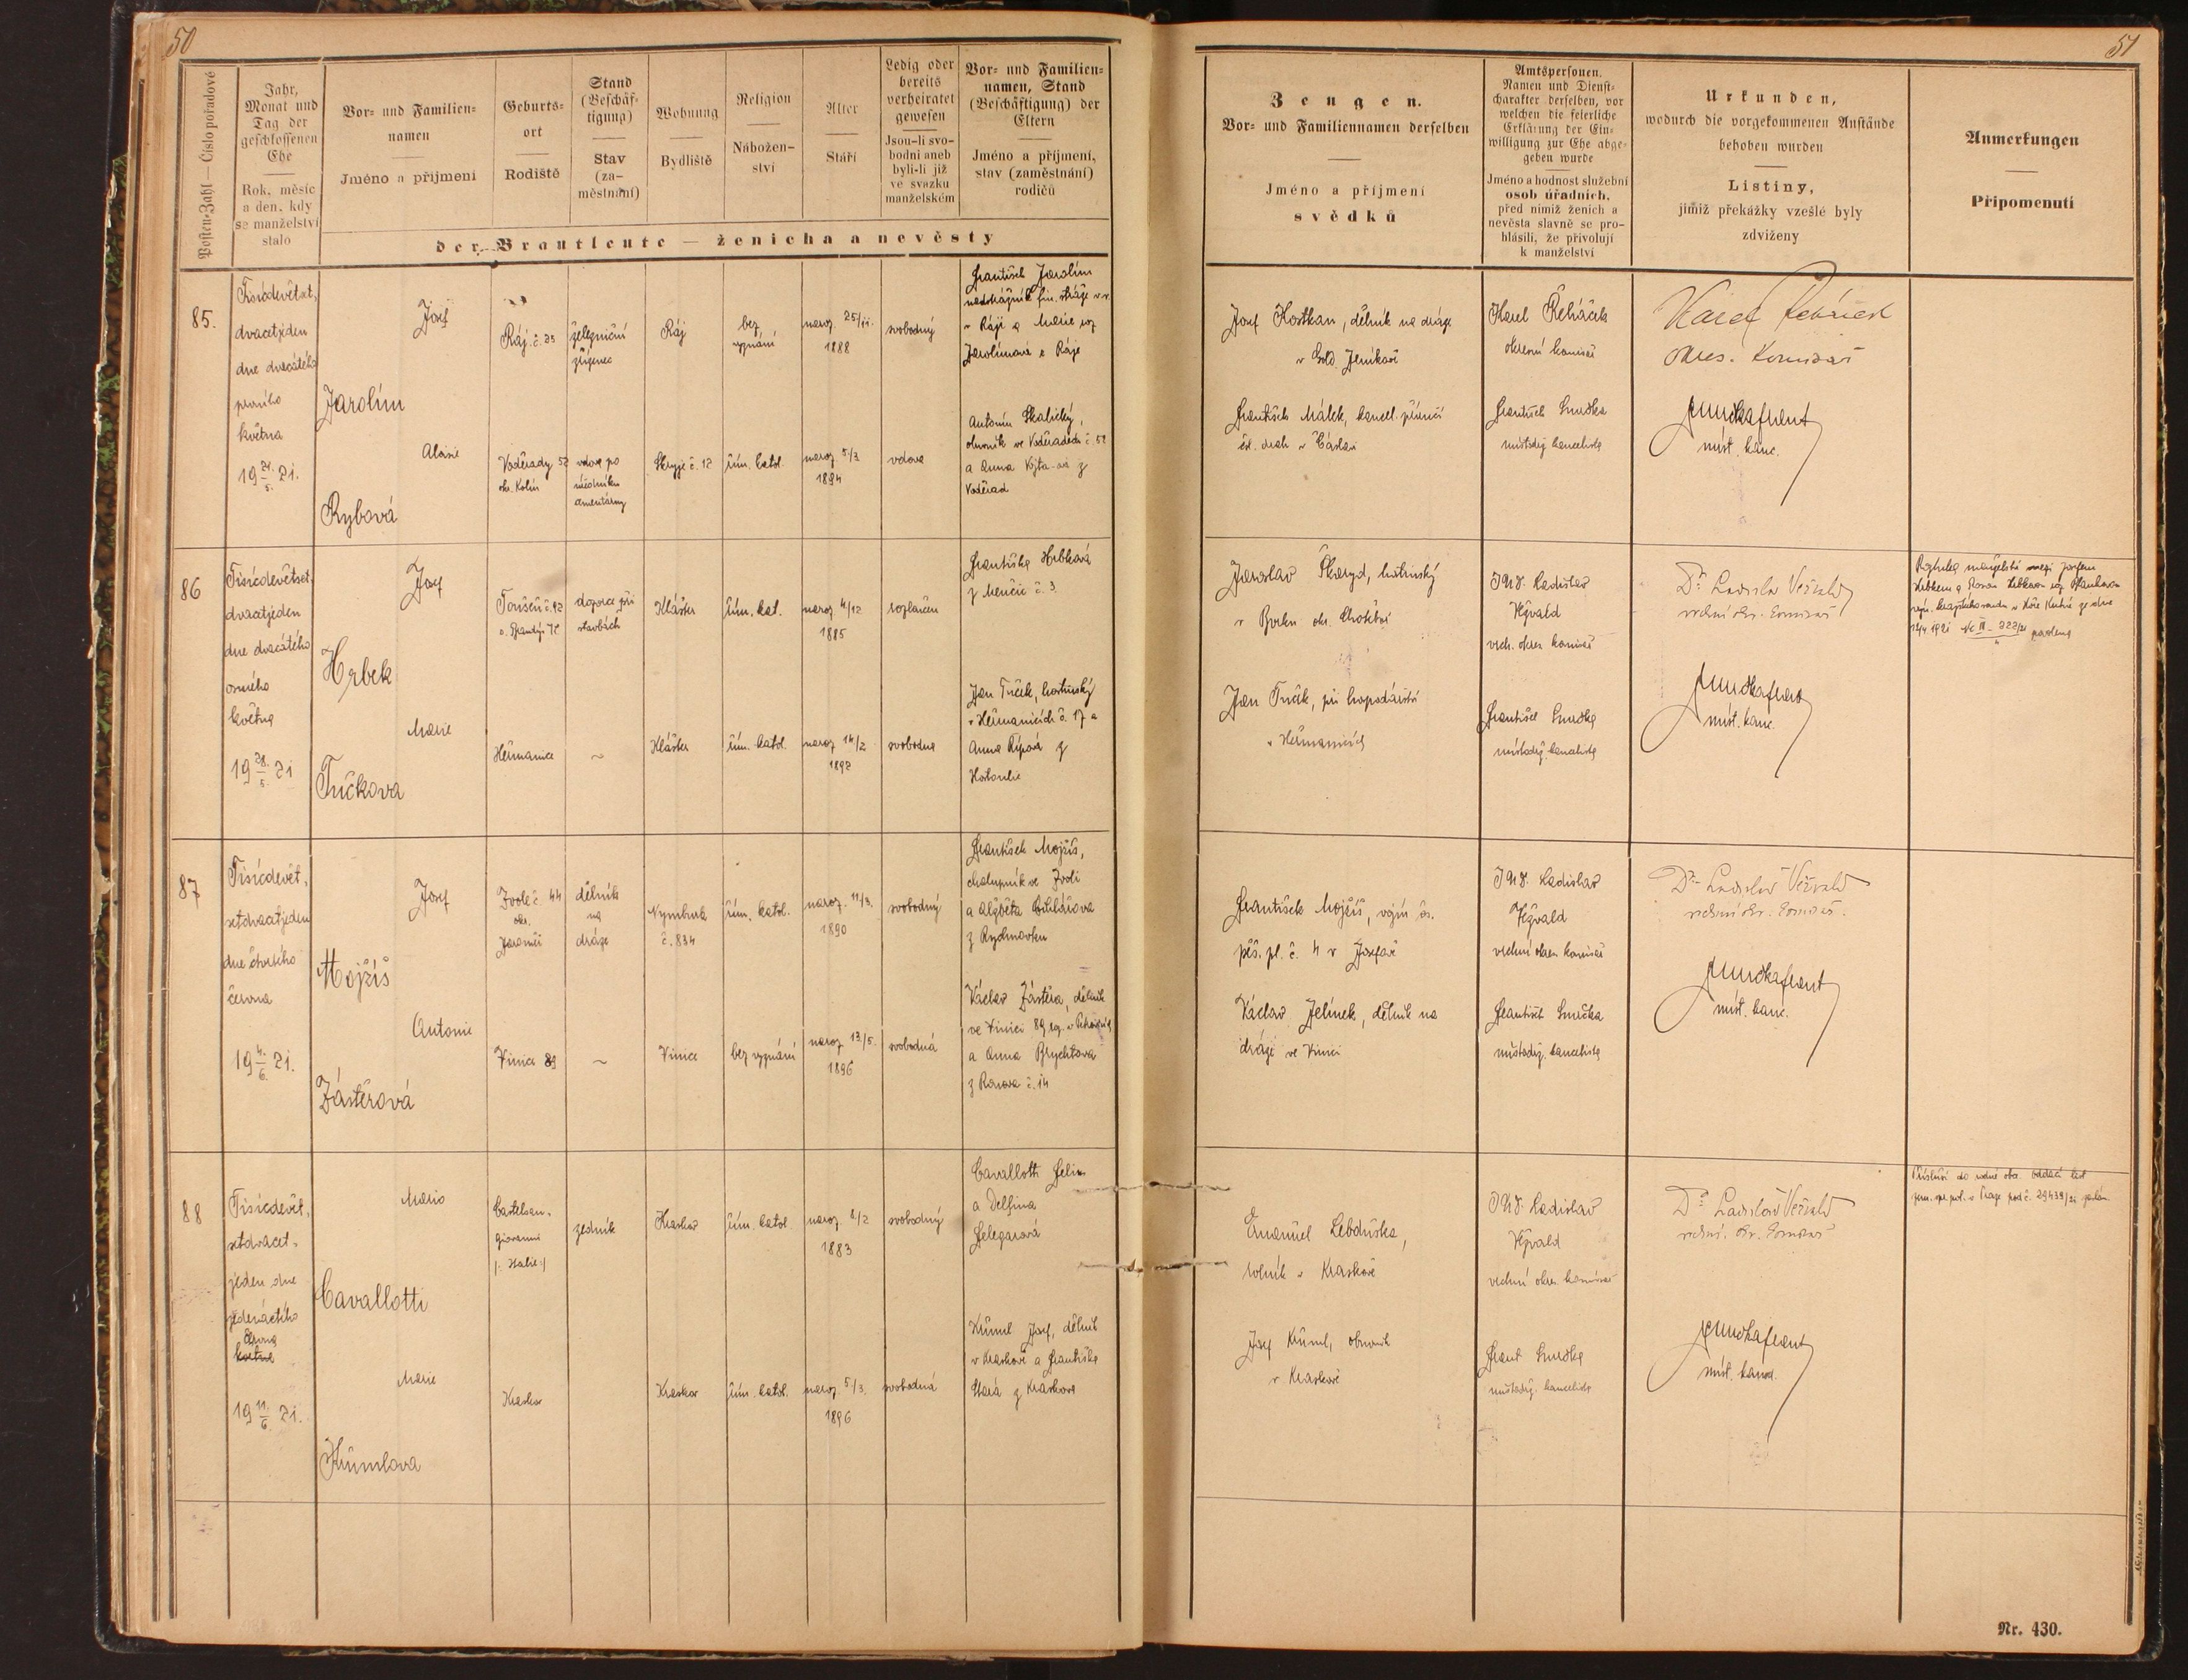 50
Posten-Zahl — Číslo pořadové
Jahr,
Monat und
Tag der
geschlossenen
Ehe
Rok, měsíc
a den, kdy
se manželství
stalo
Vor- und Familien-
namen
Jméno a příjmení
Geburts-
ort
Rodiště
Stand
(Beschäf-
tigung)
Stav
(za-
městnání)
Wohnung
Bydliště
Religion
Nábožen-
ství
Alter
Stáří
Ledig oder
bereits
verheiratet
gewesen
Jsou-li svo-
bodni aneb
byli-li již
ve svazku
manželském
Vor- und Familien-
namen, Stand
(Beschäftigung) der
Eltern
Jméno a příjmení,
stav (zaměstnání)
rodičů
der Brautleute — ženicha a nevěsty
85.
Tisícdevětset,
dvacetjeden
dne dvacátého
prvního
května
19 21./5. 21.
Josef
Jarolím
Ráj č. 23
železniční
zřízenec
Ráj
bez
vyznání
naroz. 25/11.
1888
svobodný
František Jarolím
v Ráji a Marie roz
Jarolímová z Ráje
Aloisie
Rybová
Voděrady 52
okr. Kolín
vdova po
Skryje č. 12
řím. katol.
naroz. 5/3.
1894
vdova
Antonín Skalický,
obuvník ve Voděradech č. 52
a Anna z
Voděrad
86
Tisícdevětset,
dvacetjeden
dne dvacátého
osmého
května
19 28./5. 21
Josef
Hrbek
Toušeň č. 92
dozorce při
stavbách
Klášter
řím. kat.
naroz. 4/12
1885
rozloučen
Františka Hrbková
z Menčic č. 3.
Marie
Tučkova
Heřmanice
~
Klášter
řím. katol.
naroz. 14/2
1892
svobodna
Jan Tuček, hostinský
v Heřmanicích č. 17 a
Anna Řípová z
87
Tisícdevět,
setdvacetjeden
dne čtvrtého
června
19 4./6. 21.
Josef
Mojžíš
Zvole č. 44
okr.
Jaroměř
dělník
na
dráze
Nymburk
č. 834
řím. katol.
naroz. 11/3.
1890
svobodný
František Mojžíš,
chalupník ve Zvoli
a Alžběta
z Rychnovku
Antonie
Zástěrová
Vinice 89
~
Vinice
bez vyznání
naroz. 13./5.
1896
svobodná
Václav Zástěra, dělník
ve Vinici 89
a Anna Brychtova
z Ronova č. 14
88
Tisícdevět,
setdvacet,
jeden dne
jedenáctého
června
května
19 11./6. 21.
Mario
Cavallotti
Castelsan,
Giovanni
/: Italie :/
zedník
Kraskov
řím. katol
naroz. 2/2
1883
svobodný
Cavallotti Felix
a Delfina
Felegarová
Marie
Kůmlova
Kraskov
Kraskov
řím. katol.
naroz. 5/3.
1896
svobodná
Kůml Josef, dělník
v Kraskově a Františka
Stará z Kraskova
51
Zeugen.
Vor- und Familiennamen derselben
Jméno a příjmení
svědků
Amtspersonen.
Namen und Dienst-
charakter derselben, vor
welchen die feierliche
Erklärung der Ein-
willigung zur Ehe abge-
geben wurde
Jméno a hodnost služební
osob úřadních,
před nimiž ženich a
nevěsta slavně se pro-
hlásili, že přivolují
k manželství
Urkunden,
wodurch die vorgekommenen Anstände
behoben wurden
Listiny,
jimiž překážky vzešlé byly
zdviženy
Anmerkungen
Připomenutí
Josef Kostkan, dělník na dráze
v Golč. Jeníkově
František Málek, kancel. přímčí
čsl. drah v Čáslavi
Karel Řeháček
okresní komisař
František Smrčka
místodrž. kancelista
Karel Řeháček
okres. komisař
Smrčka Frant
míst. kanc.
Jaroslav Škaryd, hostinský
okr. Chotěboř
Jan Tuček, při hospodářství
v Heřmanicích
JUDr. Ladislav
Vežvald
vrch. okres. komisař
František Smrčka
místodrž. kancelista
Dr. Ladislav Vežvald
vrchní okr. komisař
Smrčka Frant
míst. kanc.
Rozluka manželství mezi Josefem
František Mojžíš, vojín čs.
pěš. pl. č. 4 v Josefově
Václav Jelínek, dělník na
dráze ve Vinici
JUDr. Ladislav
Vežvald
vrchní okres komisař
František Smrčka
místodrž. kancelista
Dr. Ladislav Vežvald
vrchní okr. komisař.
Smrčka Frant
míst. kanc.
Emanuel Lebduška,
rolník v Kraskově
Josef Kůml, obuvník
v Kraskově
JUDr. Ladislav
Vežvald
vrchní okres. komisař
Frant Smrčka
místodrž. kancelista
Dr. Ladislav Vežvald
vrchní. okr. komisař
Smrčka Frant
míst. kancel.
Nr. 430.